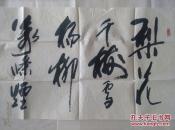 梨花
千樹雪
楊柳
萬條煙